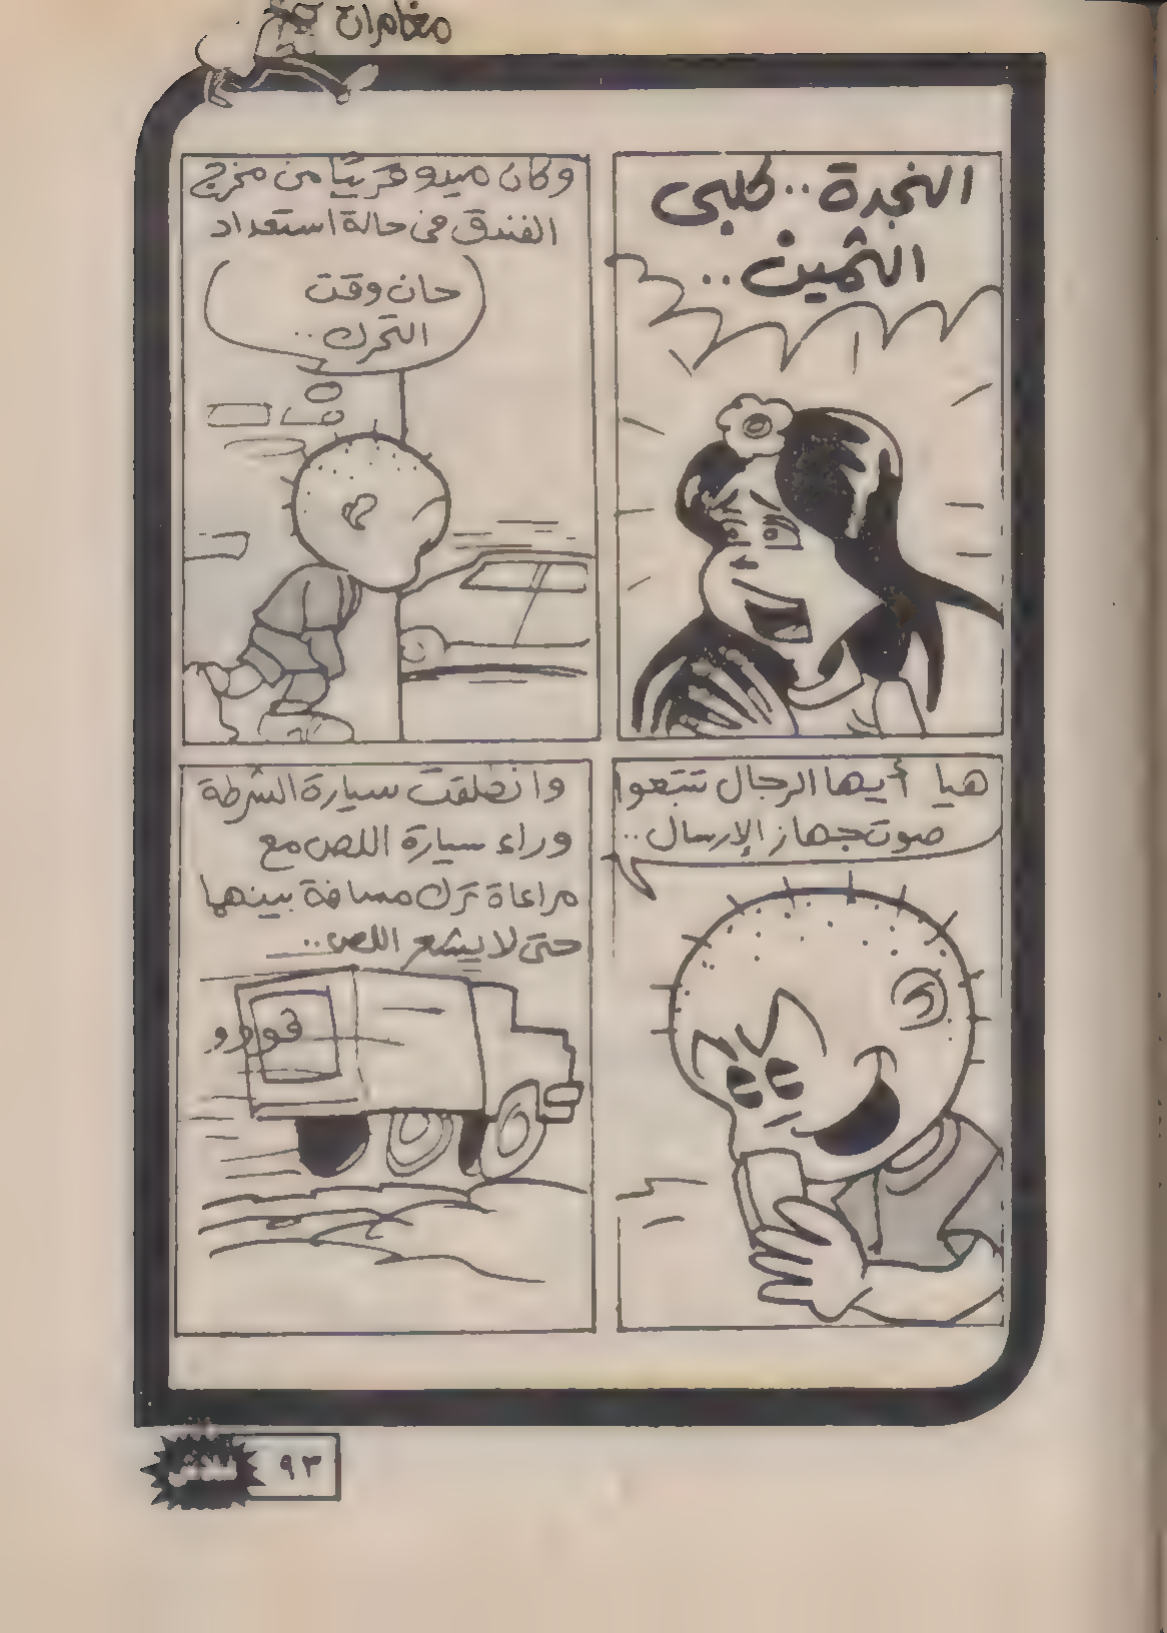 مغامرات
النجدة.. كلبى
الثمين..
وكان ميدو قريبًا من مخرج
الفندق فى حالة استعداد
حان وقت
التحرك..
هيا أيها الرجال تتبعوا
صوت جهاز الإرسال..
وانطلقت سيارة الشرطة
وراء سيارة اللص مع
مراعاة ترك مسافة بينهما
حتى لا يشعر اللص..
ڤوووو
٩٣
فلاش